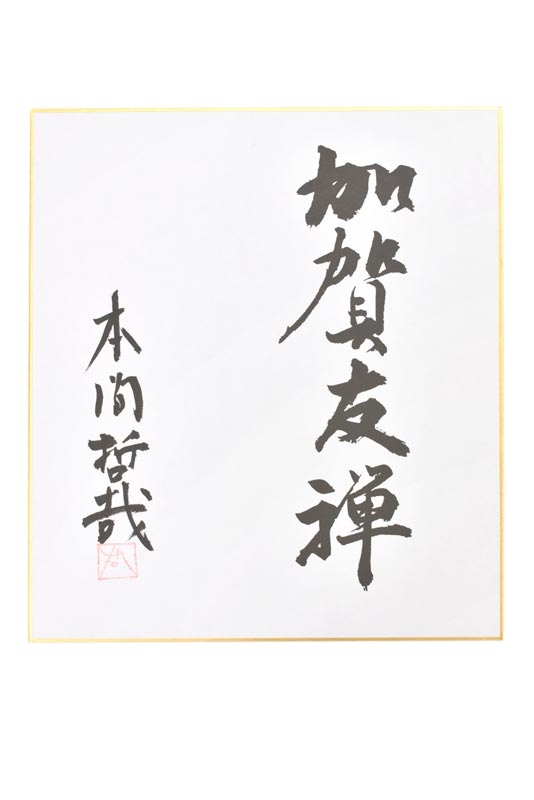 加賀友禅
本間哲哉